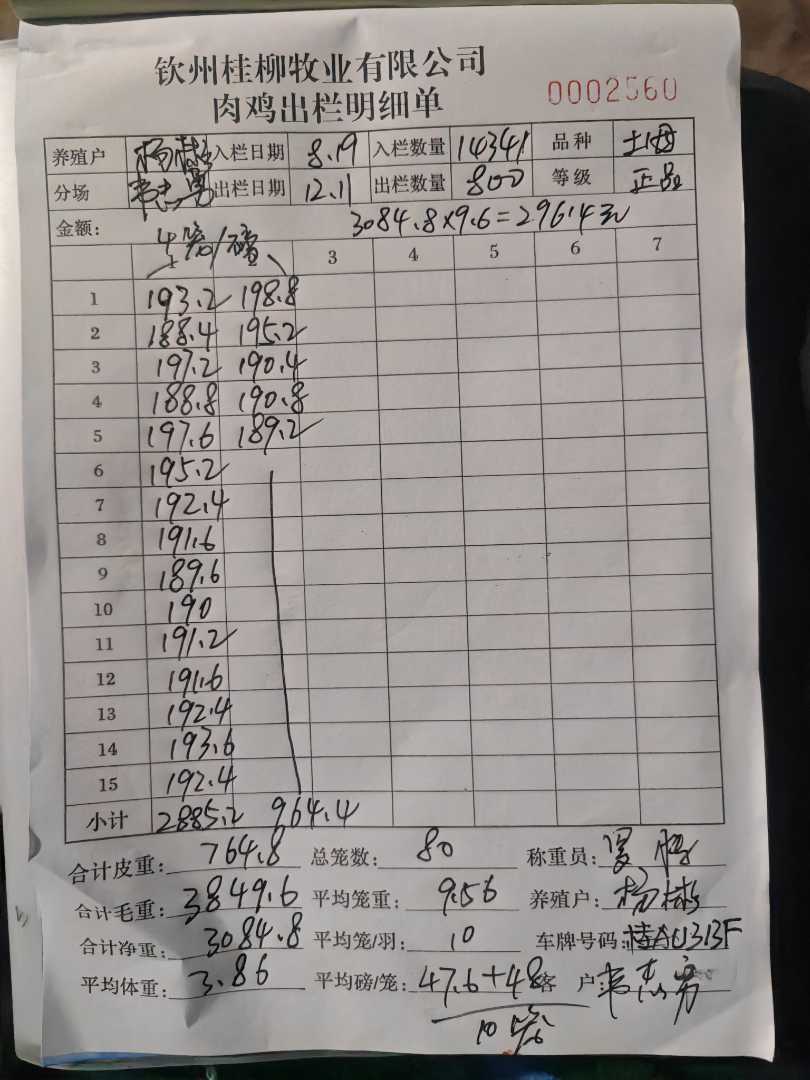 钦州桂柳牧业有限公司
肉鸡出栏明细单
0002560
养殖户 杨彬 入栏日期 8.19 入栏数量 14341 品种 土2
分场 出栏日期 12.11 出栏数量 800 等级 正品
金额: 3084.8×9.6=29614元
4笼/磅
1 2 3 4 5 6 7
1 193.2 198.8
2 188.4 195.2
3 197.2 190.4
4 188.8 190.8
5 197.6 189.2
6 195.2
7 192.4
8 191.6
9 189.6
10 190
11 191.2
12 191.6
13 192.4
14 193.6
15 192.4
小计 2885.2 964.4
合计皮重: 764.8 总笼数: 80 称重员:
合计毛重: 3849.6 平均笼重: 9.56 养殖户: 杨彬
合计净重: 3084.8 平均笼/羽: 10 车牌号码: 桂AU313F
平均体重: 3.86 平均磅/笼: 47.6+48 客 户
10笼